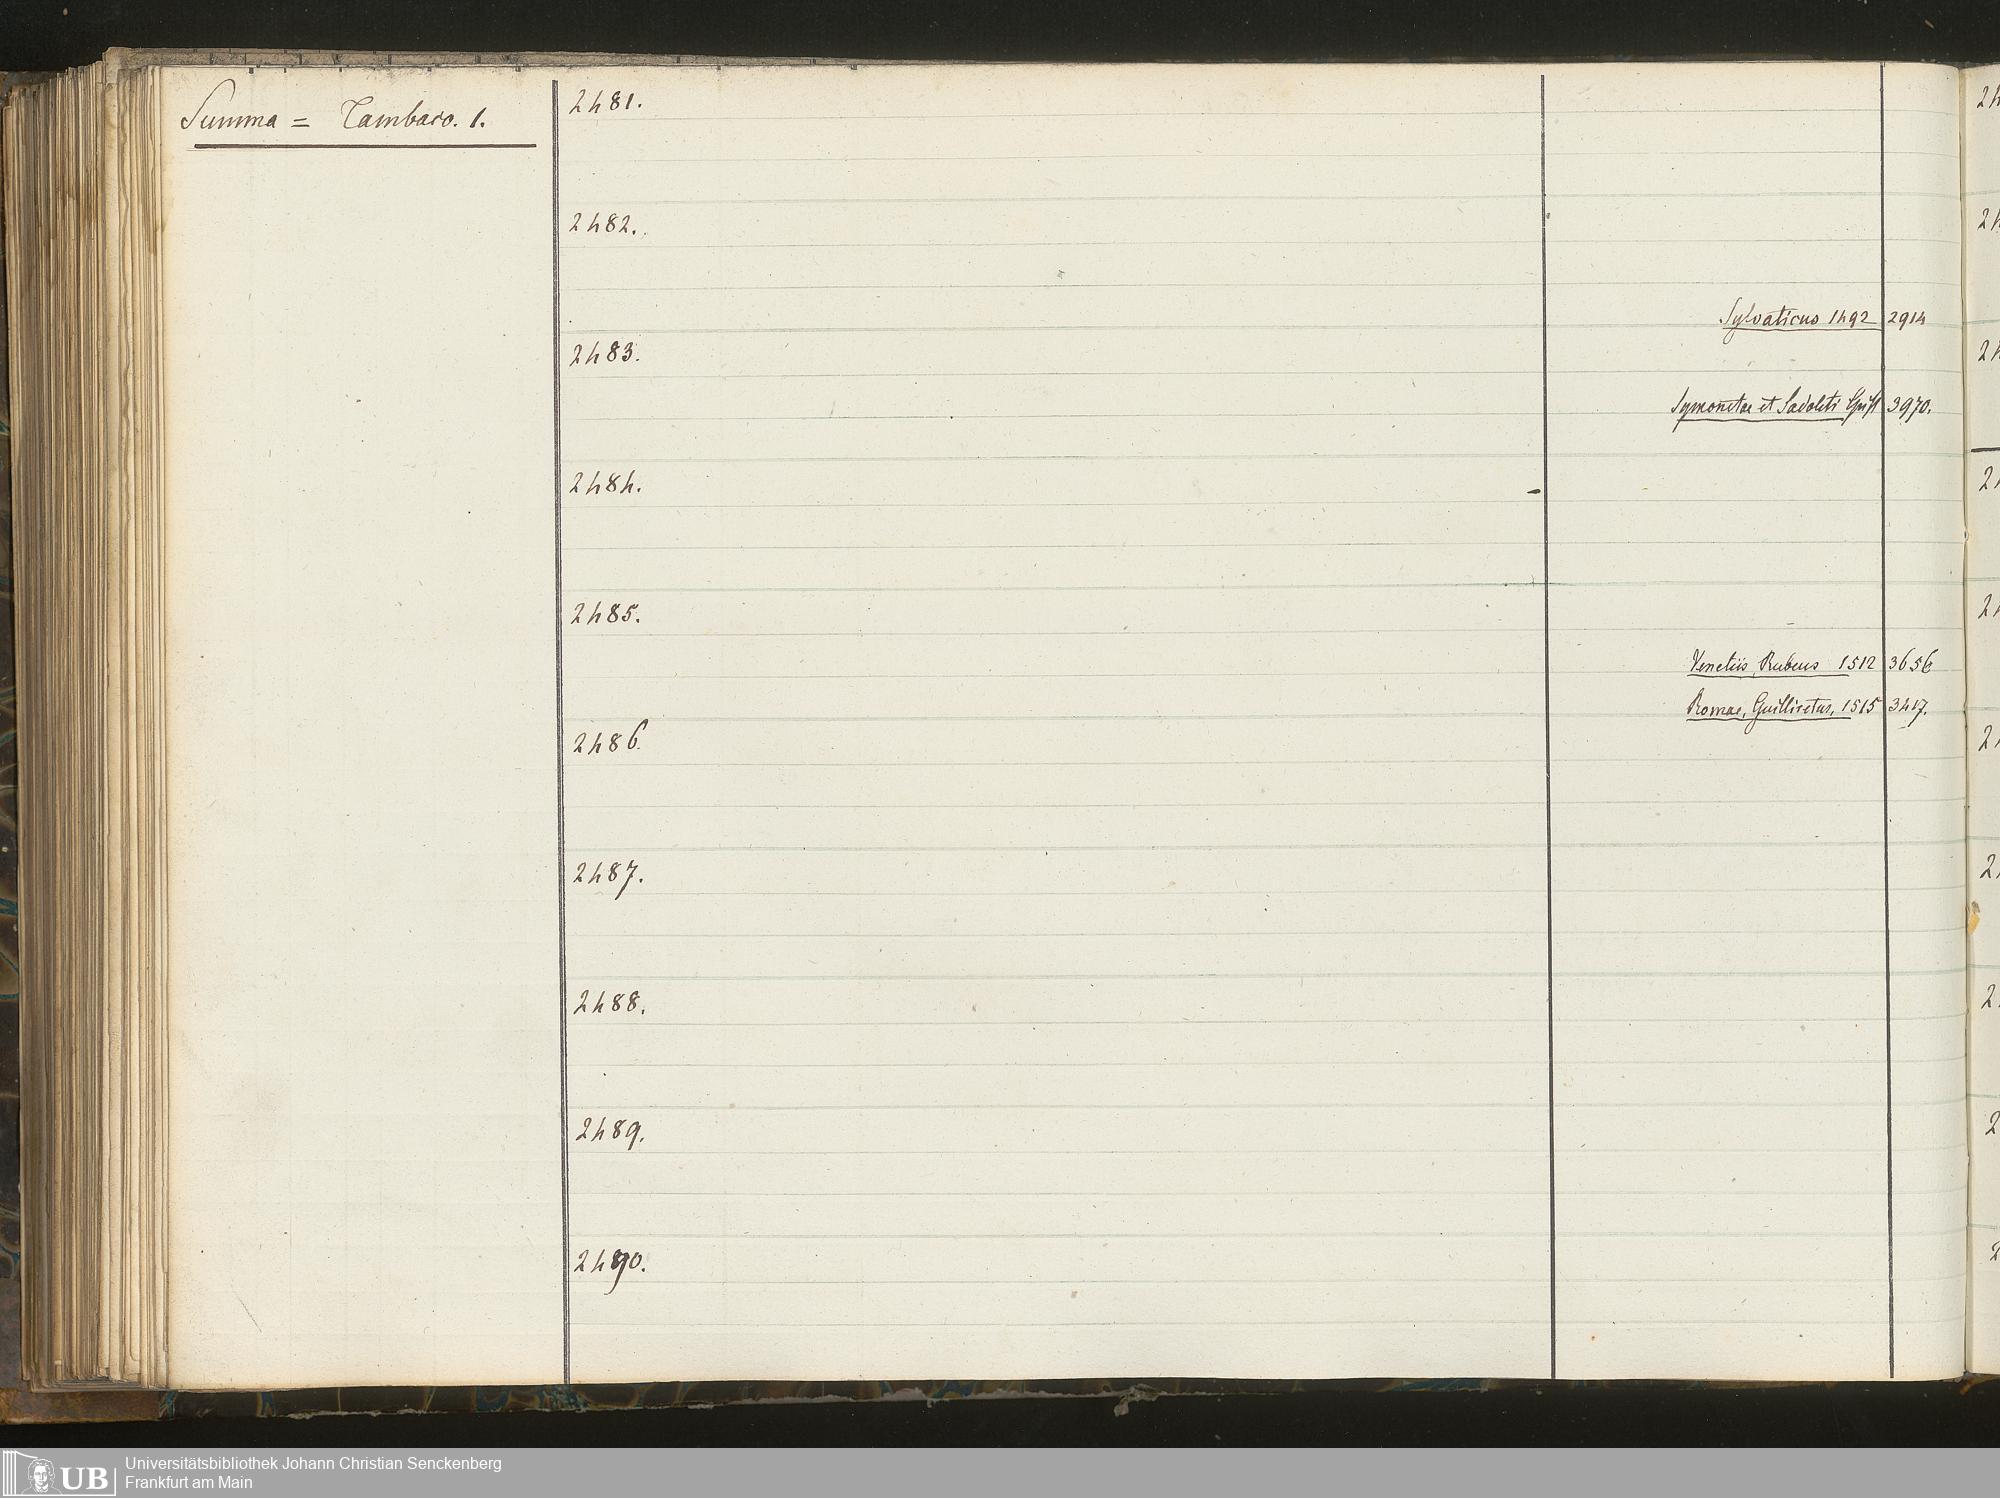 Summa = Tambaco. 1.
2481.
2482.
Sylvaticus 1492 2914
2483.
Symonetae et Sadoleti 3970.
2484.
2485.
Venetiis, Rubeus 1512 3656
Romae, Guilliretus, 1515 3417.
2486.
2487.
2488.
2489.
2490.
Universitätsbibliothek Johann Christian Senckenberg
Frankfurt am Main
UB